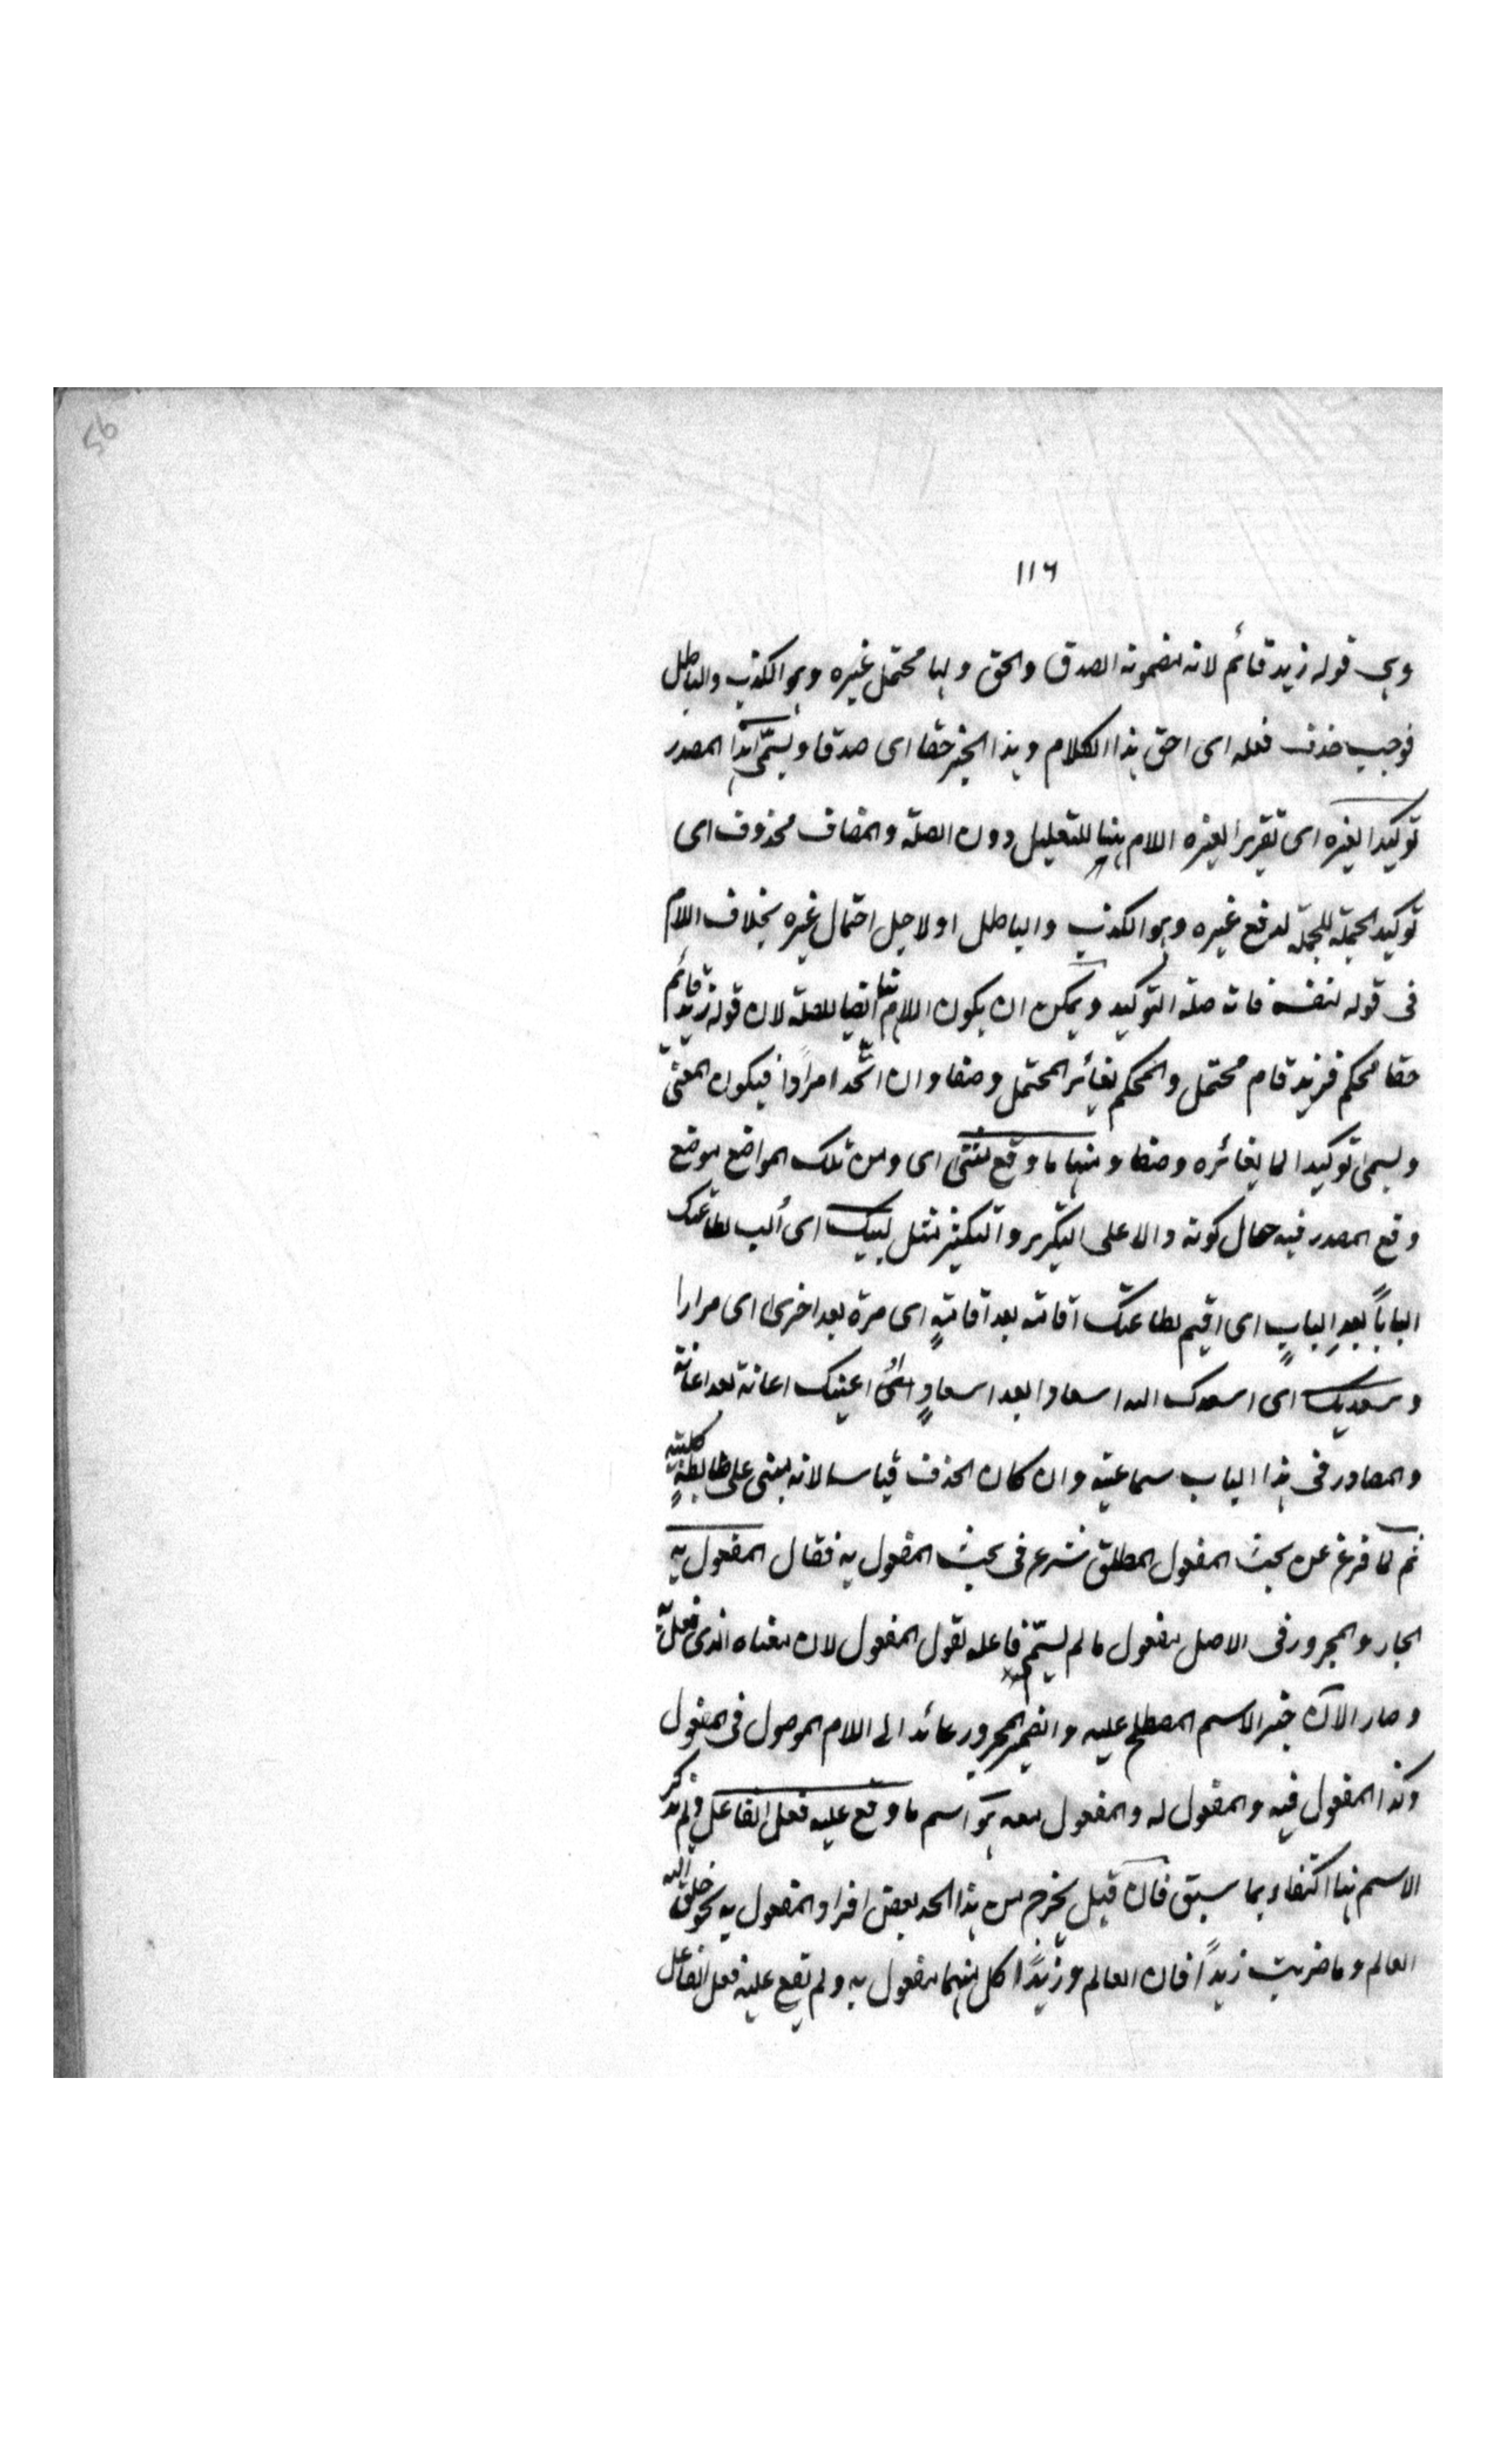 56
١١٦
وهى قوله زيد قائم لانه مضمونه الصدق والحق ولها محتمل غيره وهو الكذب والباطل
فوجب حذف فعله اى احق هذا الكلام وهذا الخبر حقا اى صدقا ويسمّى هذا المصدر
توكيدا لغيره اى تقريرا لغيره اللام هنا للتعليل دون الصلة والمضاف محذوف اى
توكيد الجملة للجملة لدفع غيره وهو الكذب والباطل او لاجل احتمال غيره بخلاف اللام
فى قوله لنفسه فانه صلة التوكيد ويمكن ان يكون اللام هنا ايضا للصلة لان قوله زيد قائم
حقا محكم فزيد قام محتمل والمحكم يغائر المحتمل وصفا وان اتّحد امرا فيكون المعنى
ويسمى توكيدا لما يغائره وصفا ومنها ما وقع مثنى اى ومن تلك المواضع موضع
وقع المصدر فيه حال كونه دالا على التكرير والتكثير مثل لبيك اى ألب لطاعتك
الباباً بعد البابٍ اى اقيم لطاعتك اقامة بعد اقامةٍ اى مرة بعد اخرى اى مرارا
وسعديك اى اسعدك الله اسعادا بعد اسعادٍ اى اعينك اعانة بعد اعانة
والمصادر فى هذا الباب سماعية وان كان الحذف قياسا لانه مبنى على ضابطةٍ كلية
ثم لما فرغ عن بحث المفعول المطلق شرع فى بحث المفعول به فقال المفعول به
الجار والمجرور فى الاصل مفعول ما لم يسمّ فاعله لقول المفعول لان معناه الذى فعل به
وصار الآن جزء الاسم المصطلح عليه والضمير المجرور عائد الى اللام الموصول فى المفعول
وكذا المفعول فيه والمفعول له والمفعول معه هو اسم ما وقع عليه فعل الفاعل ولم يذكر
الاسم هنا اكتفاء بما سبق فان قيل يخرج من هذا الحد بعض افراد المفعول به نحو خلق الله
العالم وما ضربت زيداً فان العالم وزيداً كل منهما مفعول به ولم يقع عليه فعل الفاعل